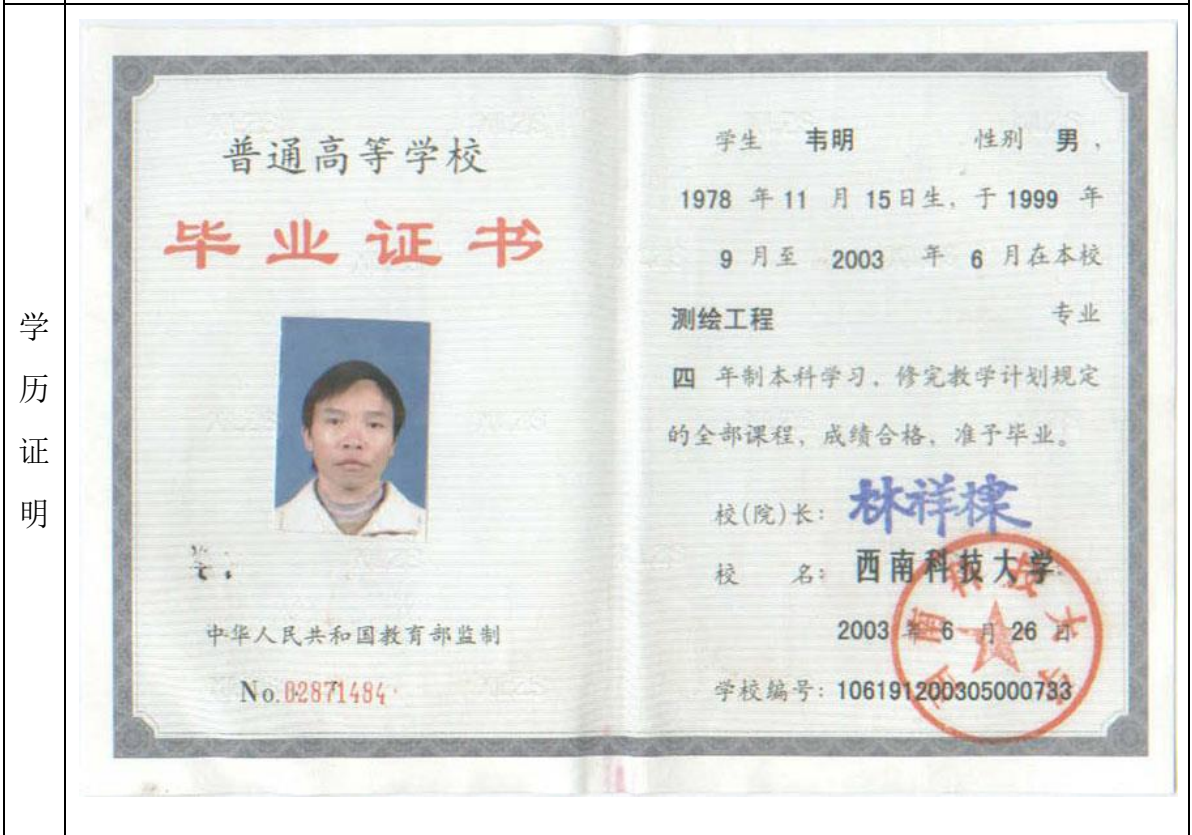 学
历
证
明
普通高等学校
毕业证书
中华人民共和国教育部监制
No.02871484
学生 韦明 性别 男，
1978 年 11 月 15日生，于1999 年
9 月至 2003 年 6 月在本校
测绘工程 专业
四 年制本科学习，修完教学计划规定
的全部课程，成绩合格，准予毕业。
校(院)长：林祥棣
校 名：西南科技大学
2003 年 6 月 26 日
学校编号：106191200305000733
西南科技大学